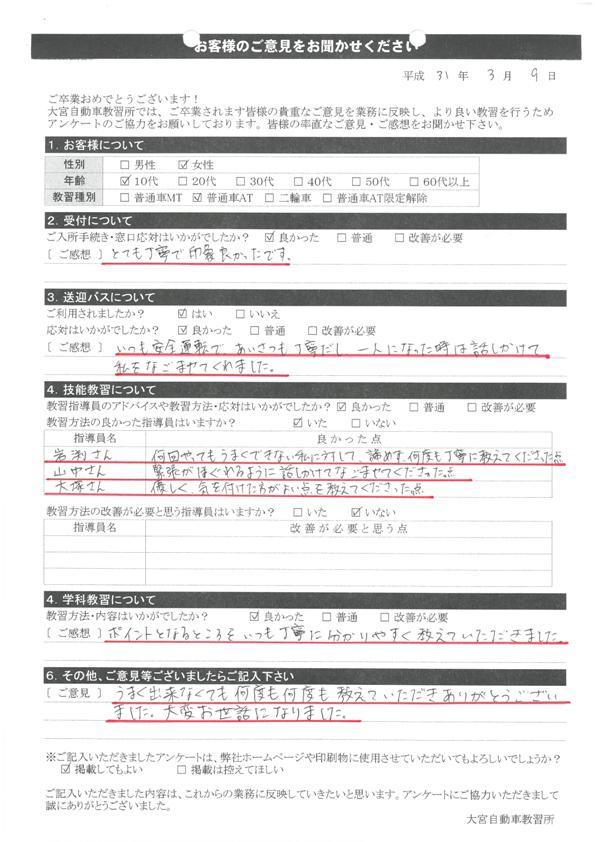 お客様のご意見をお聞かせください
平成 31 年 3 月 9 日
ご卒業おめでとうございます！
大宮自動車教習所では、ご卒業されます皆様の貴重なご意見を業務に反映し、より良い教習を行うため
アンケートのご協力をお願いしております。皆様の率直なご意見・ご感想をお聞かせ下さい。
1. お客様について
性別 □ 男性 ☑ 女性
年齢 ☑ 10代 □ 20代 □ 30代 □ 40代 □ 50代 □ 60代以上
教習種別 □ 普通車MT ☑ 普通車AT □ 二輪車 □ 普通車AT限定解除
2. 受付について
ご入所手続き・窓口応対はいかがでしたか？ ☑ 良かった □ 普通 □ 改善が必要
［ ご感想 ］とても丁寧で印象良かったです。
3. 送迎バスについて
ご利用されましたか？ ☑ はい □ いいえ
応対はいかがでしたか？ ☑ 良かった □ 普通 □ 改善が必要
［ ご感想 ］いつも安全運転で、あいさつも丁寧だし、一人になった時は話しかけて
私をなごませてくれました。
4. 技能教習について
教習指導員のアドバイスや教習方法・応対はいかがでしたか？ ☑ 良かった □ 普通 □ 改善が必要
教習方法の良かった指導員はいますか？ ☑ いた □ いない
指導員名 良かった点
岩渕さん 何回やってもうまくできない私に対して、諦めず、何度も丁寧に教えてくださった点
山中さん 緊張がほぐれるように話しかけてなごませてくださった点
大塚さん 優しく、気を付けた方がよい点を教えてくださった点
教習方法の改善が必要と思う指導員はいますか？ □ いた ☑ いない
指導員名 改善が必要と思う点
4. 学科教習について
教習方法・内容はいかがでしたか？ ☑ 良かった □ 普通 □ 改善が必要
［ ご感想 ］ポイントとなるところをいつも丁寧に分かりやすく教えていただきました。
6. その他、ご意見等ございましたらご記入下さい
［ ご意見 ］うまく出来なくても何度も何度も教えていただきありがとうござい
ました。大変お世話になりました。
※ご記入いただきましたアンケートは、弊社ホームページや印刷物に使用させていただいてもよろしいでしょうか？
☑ 掲載してもよい □ 掲載は控えてほしい
ご記入いただきました内容は、これからの業務に反映していきたいと思います。アンケートにご協力いただきまして
誠にありがとうございました。
大宮自動車教習所